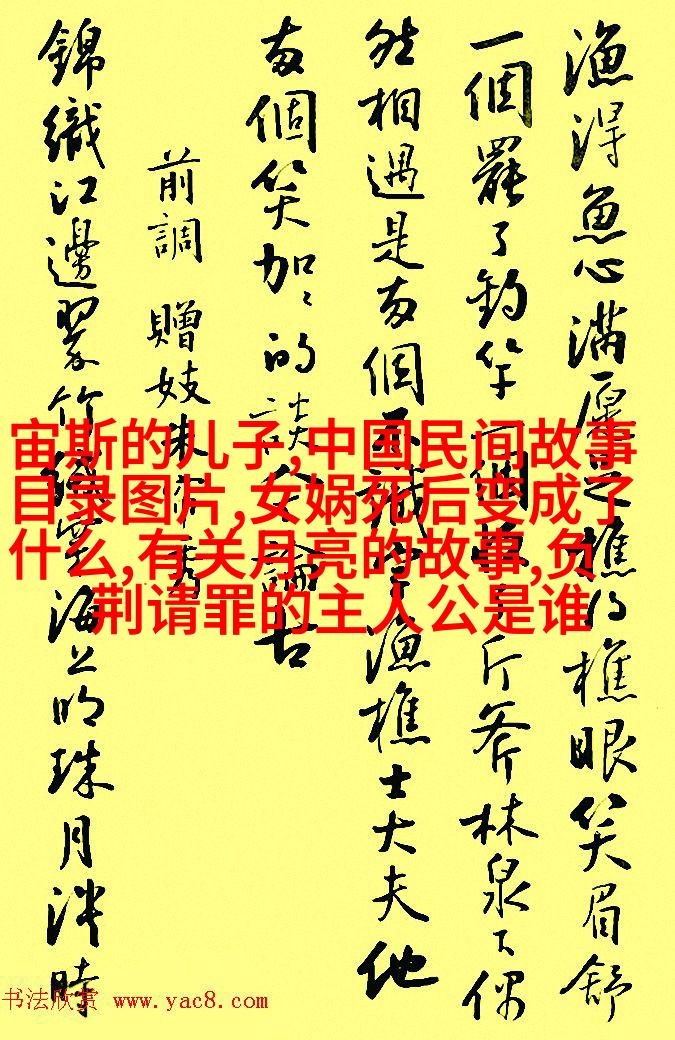 漁得魚心滿愿足樵得樵眼笑眉舒
一個罷了釣竿一個收了斤斧林泉下偶
然相遇是兩個不識字漁樵士大夫他
兩個笑加〻的談今論古
前調 贈妓朱簾秀
錦織江邊翠竹絨穿海上明珠月淡時
宙斯的儿子,中国民间故事
目录图片,女娲死后变成了
什么,有关月亮的故事,负
荆请罪的主人公是谁
书法欣赏 www.yac8.com